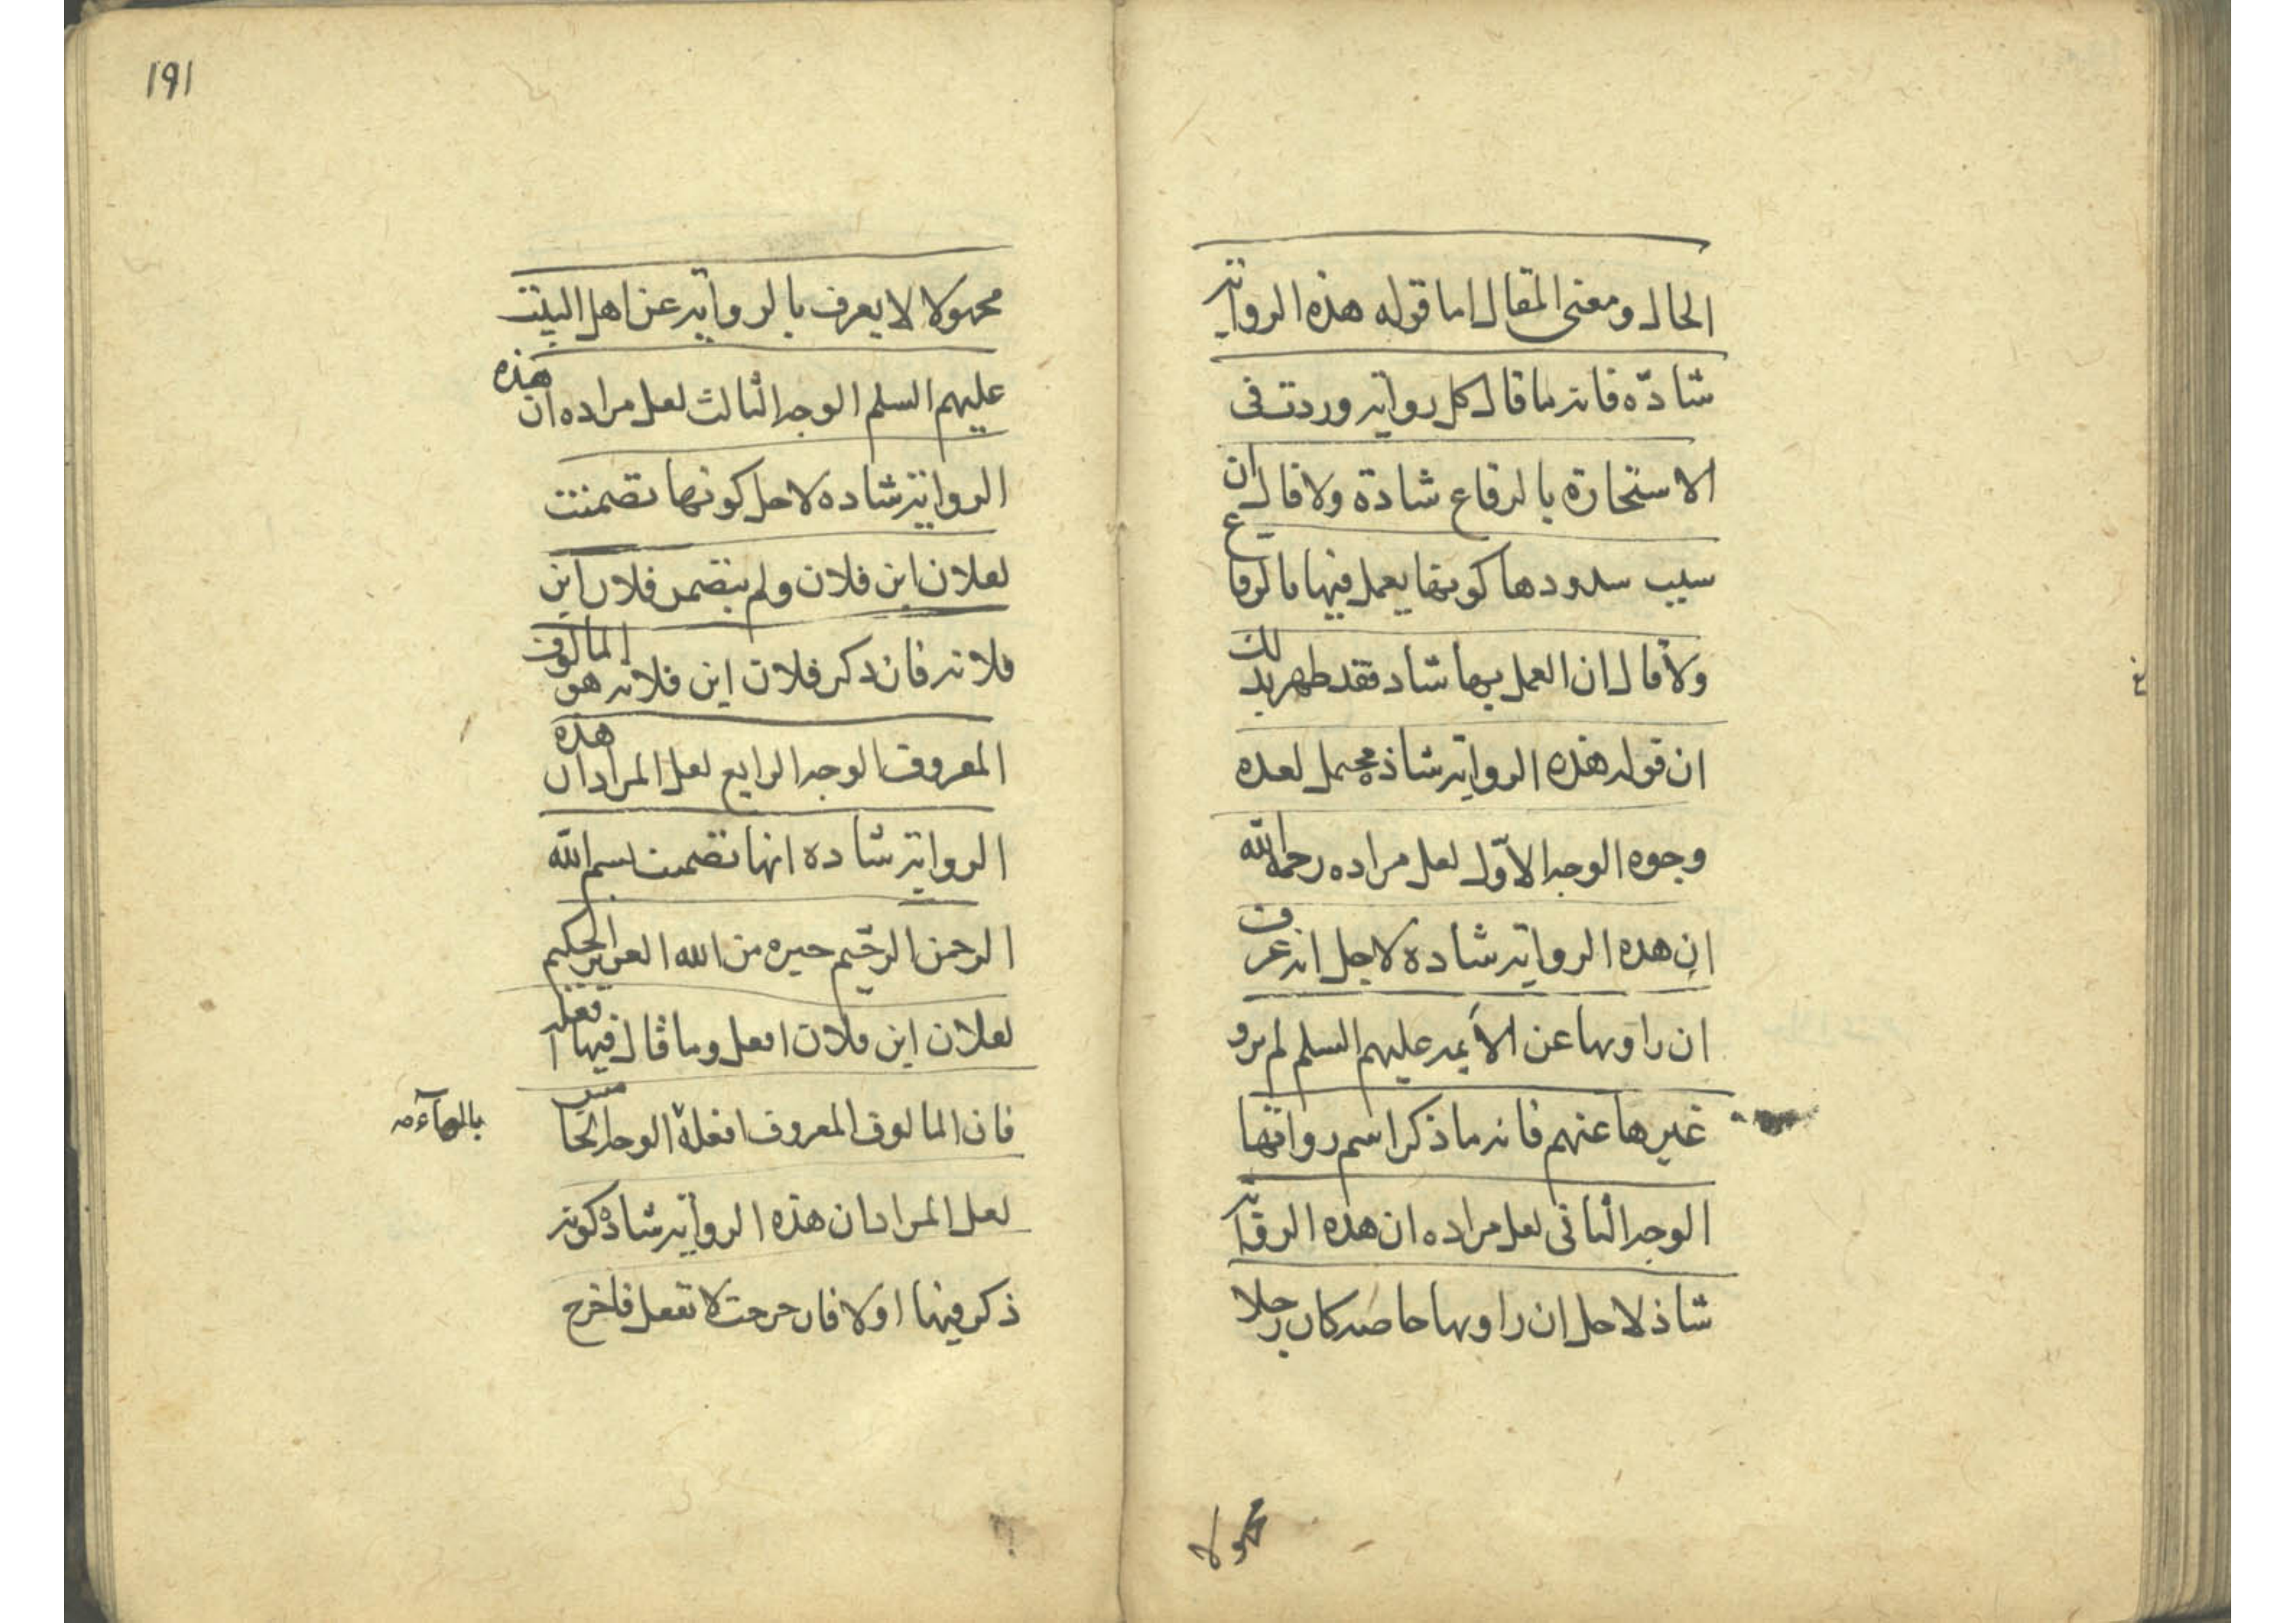 الحال ومعنى المقال اما قوله هذه الرواية
شاذّه فانه ما قال كل رواية وردت فى
الاستخارة بالرقاع شاذة ولا قال ان
سبب شذوذها كونها يعمل فيها بالرقاع
ولا قال ان العمل بها شاذ فقد ظهر بذلك
ان قوله هذه الرواية شاذه محتمل لعده
وجوه الوجه الاوّل لعل مراده رحمه الله
ان هذه الرواية شاذه لاجل انه عرف
ان راويها عن الأيمه عليهم السلم لم يرو
غيرها عنهم فانه ما ذكر اسم رواتها
الوجه الثانى لعل مراده ان هذه الرواية
شاذ لاجل ان راويها خاصه كان رجلا
مجهولا
191
مجهولا لا يعرف بالرواية عن اهل البيت
عليهم السلم الوجه الثالث لعل مراده ان هذه
الرواية شاذه لاجل كونها تضمنت
لفلان ابن فلان ولم يتضمن فلان ابن
فلانه فان ذكر فلان ابن فلانه هو المالوف
المعروف الوجه الرابع لعل المراد ان هذه
الرواية شاذه انها تضمنت بسم الله
الرحمن الرحيم خيره من الله العزيز الحكيم
لفلان ابن فلان افعل وما قال فيها افعله
فان المالوف المعروف افعله الوجه الخامس
بالهآء
لعل المراد ان هذه الرواية شاذه كونه
ذكر فيها اولا فان خرجت لا تفعل فاخرج